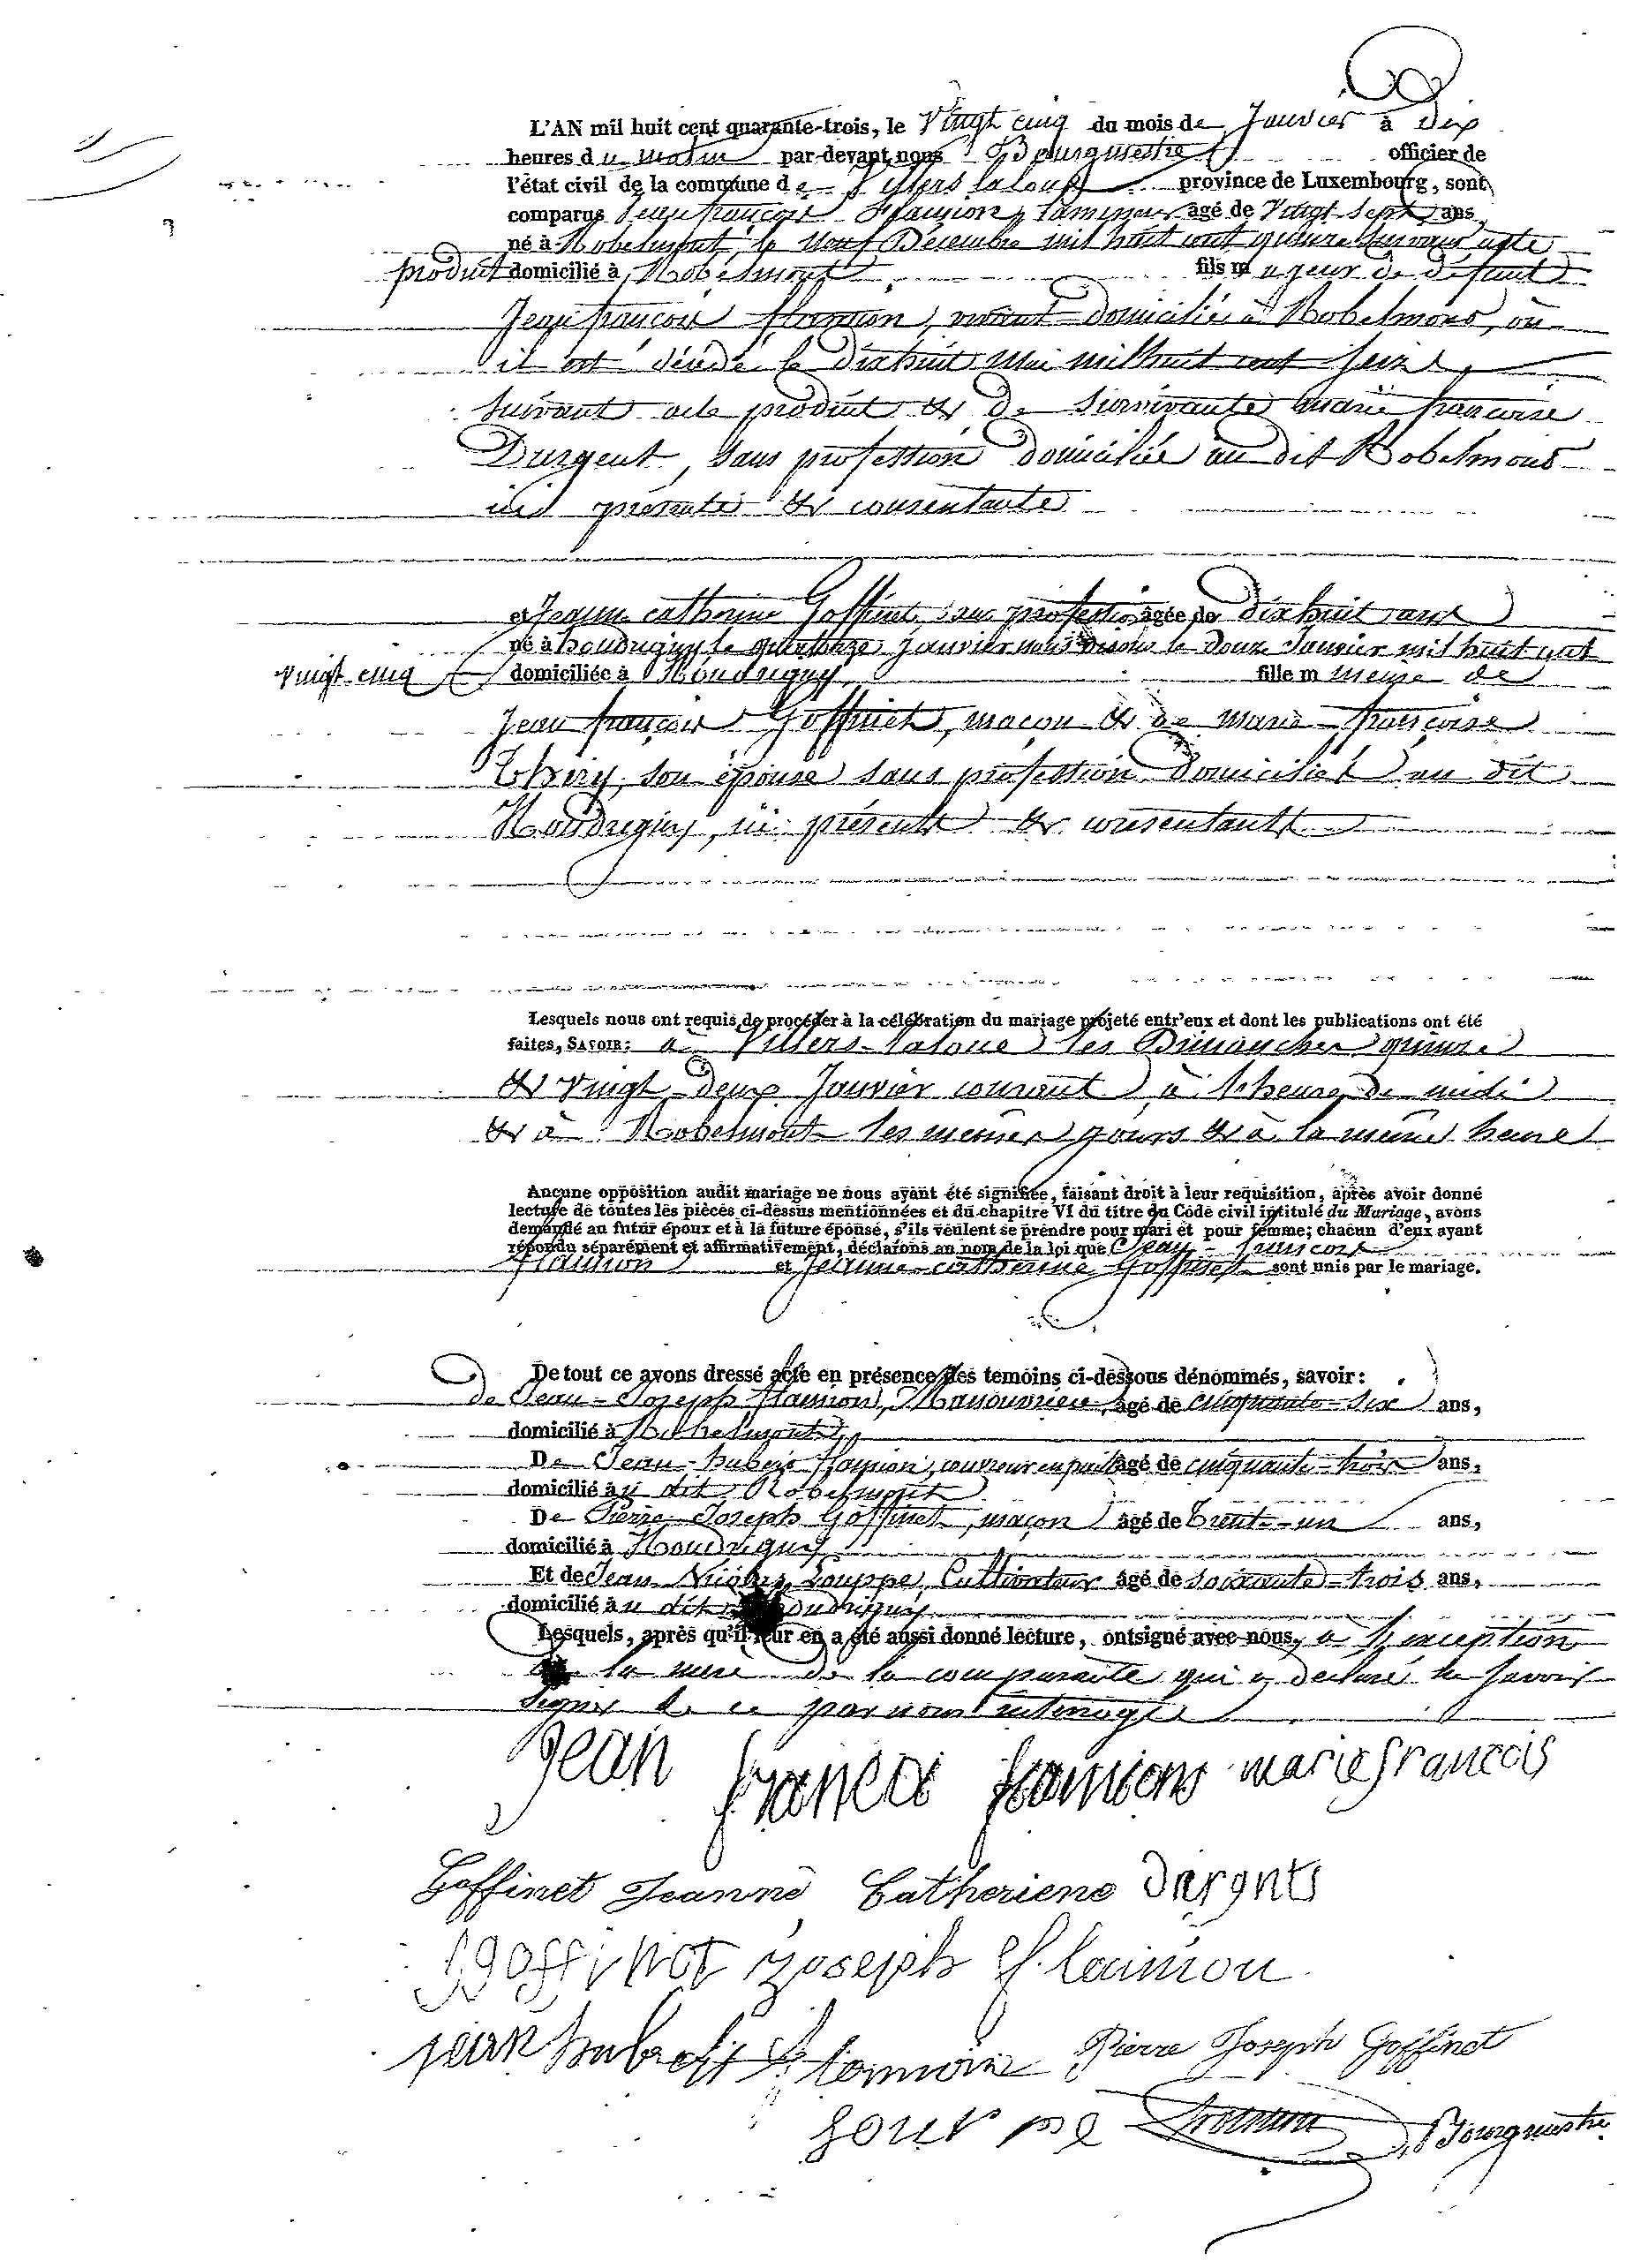 L'AN mil huit cent quarante-trois, le Vingt cinq du mois de Janvier à dix
heures du matin par-devant nous Bourgmestre officier de
l'état civil de la commune de Villers-la-loue province de Luxembourg, sont
comparus Jean françois flamion, agé de Vingt-Sept ans,
né à Robelmont, le neuf Décembre mil huit cent quinze suivant acte
produit domicilié à Robelmont fils majeur de défunt
Jean françois flamion, vivant domicilié à Robelmont, où
il est décédé le dixhuit Mai mil huit cent seize,
suivant acte produit & de survivante marie françoise
Dargent, sans profession domiciliée au dit Robelmont
ici présente & consentante
et Jeanne catherine Goffinet, sans profession agée de dixhuit ans
né à houdrigny le quatorze janvier nous disons le douze Janvier mil huit cent
vingt cinq domiciliée à Houdrigny fille mineure de
Jean françois Goffinet, maçon & de marie françoise
Thiry, son épouse sans profession domiciliés au dit
Houdrigny, ici présents & consentants
Lesquels nous ont requis de procéder à la célébration du mariage projeté entr'eux et dont les publications ont été
faites, SAVOIR: à Villers-laloue les Dimanches quinze
& vingt-deux Janvier courant à l'heure de midi
& à Robelmont les mêmes jours & à la même heure
Aucune opposition audit mariage ne nous ayant été signifiée, faisant droit à leur requisition, après avoir donné
lecture de toutes les pièces ci-dessus mentionnées et du chapitre VI du titre du Code civil intitulé du Mariage, avons
demandé au futur époux et à la future épouse, s'ils veulent se prendre pour mari et pour femme; chacun d'eux ayant
répondu séparément et affirmativement, déclarons au nom de la loi que Jean-françois
flamion et Jeanne-catherine Goffinet sont unis par le mariage.
De tout ce avons dressé acte en présence des temoins ci-dessous dénommés, savoir:
de Jean-Joseph flamion, Manouvrier, agé de cinquante-six ans,
domicilié à Robelmont,
De Jean-hubert flamion, couvreur en paille agé de cinquante-trois ans,
domicilié au dit Robelmont
De Pierre-Joseph Goffinet, maçon agé de trente-un ans,
domicilié à Houdrigny
Et de Jean Nicolas Louppe, Cultivateur agé de soixante-trois ans,
domicilié au dit houdrigny
Lesquels, après qu'il leur en a été aussi donné lecture, ont signé avec nous, à l'exception
de la mère de la comparante qui a declaré ne savoir
signer de ce par nous interrogée
Jean francoi flamion marie francois
Goffinet Jeanne Catheriene dargnts
goffinet joseph flamion
jean hubert flamion Pierre Joseph Goffinet
Bourgmestre